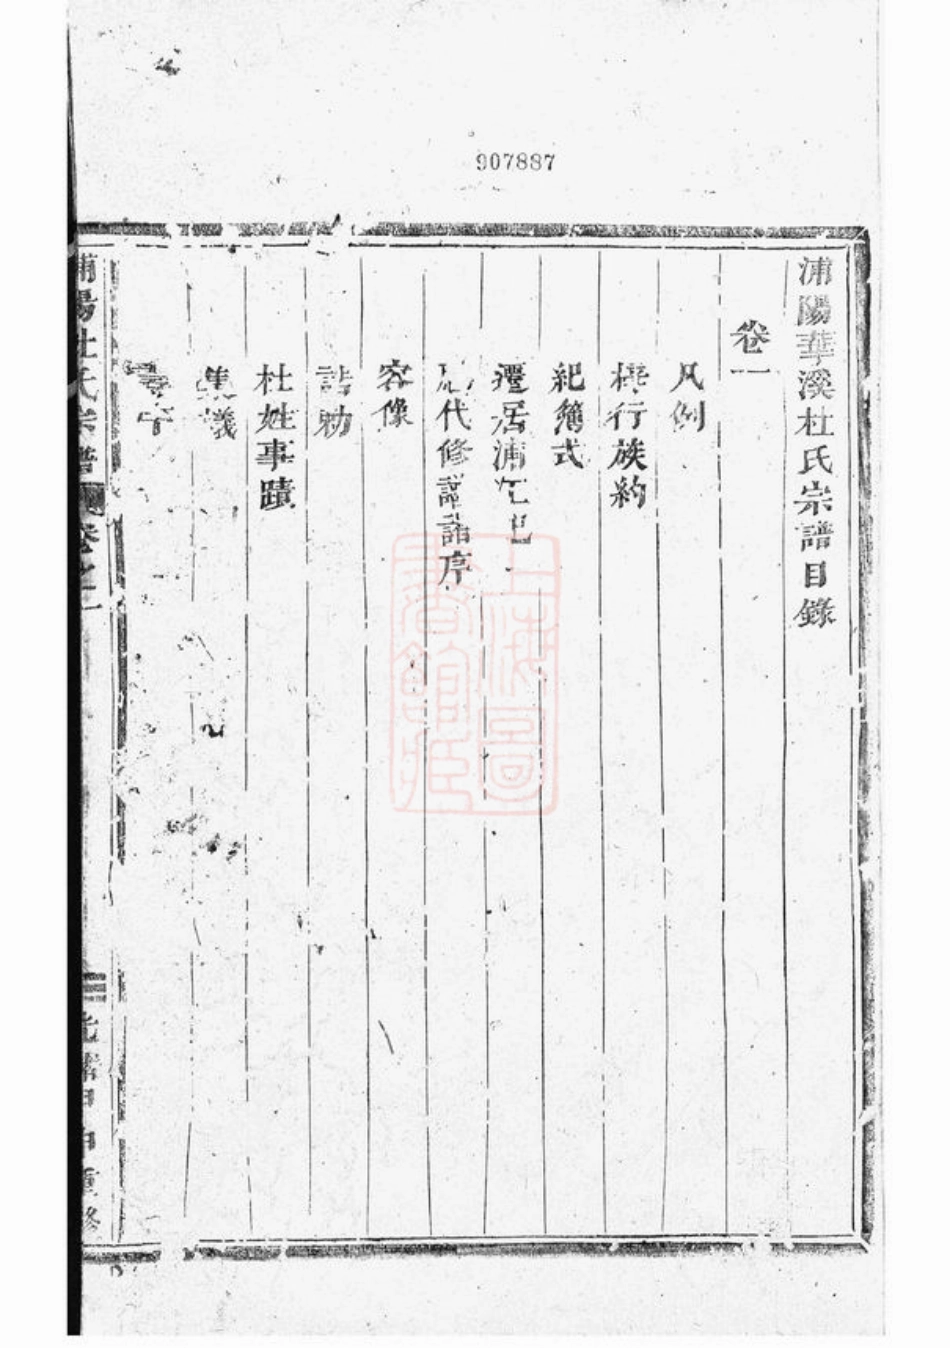 907887
浦陽華溪杜氏宗譜目錄
卷一
凡例
行族約
紀簿式
遷居浦
代修譜序
容像
誥勅
杜姓事蹟
集議
浦陽杜氏宗譜
卷之一
光緒甲申重修
上海圖書館藏